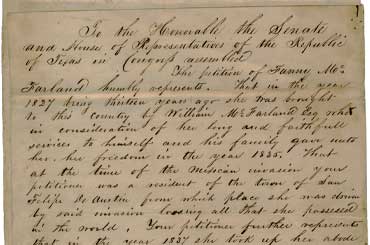 To the Honorable the Senate
and House of Representatives of the Republic
of Texas in Congress assembled
The petition of Fanny Mc
Farland humbly represents. That in the year
1827 being thirteen years ago she was bought
to this country by William McFarland Esq who
in consideration of her long and faithfull
services to himself and his family gave unto
her, her freedom in the year 1835. That
at the time of the mixican invasion your
petitioner was a resident of the town of San
Filipe De Austin from which place she was driven
by said invasion loosing all that she possessed
in the world, Your petitioner further represents
that in the year 1837 she took up her abode